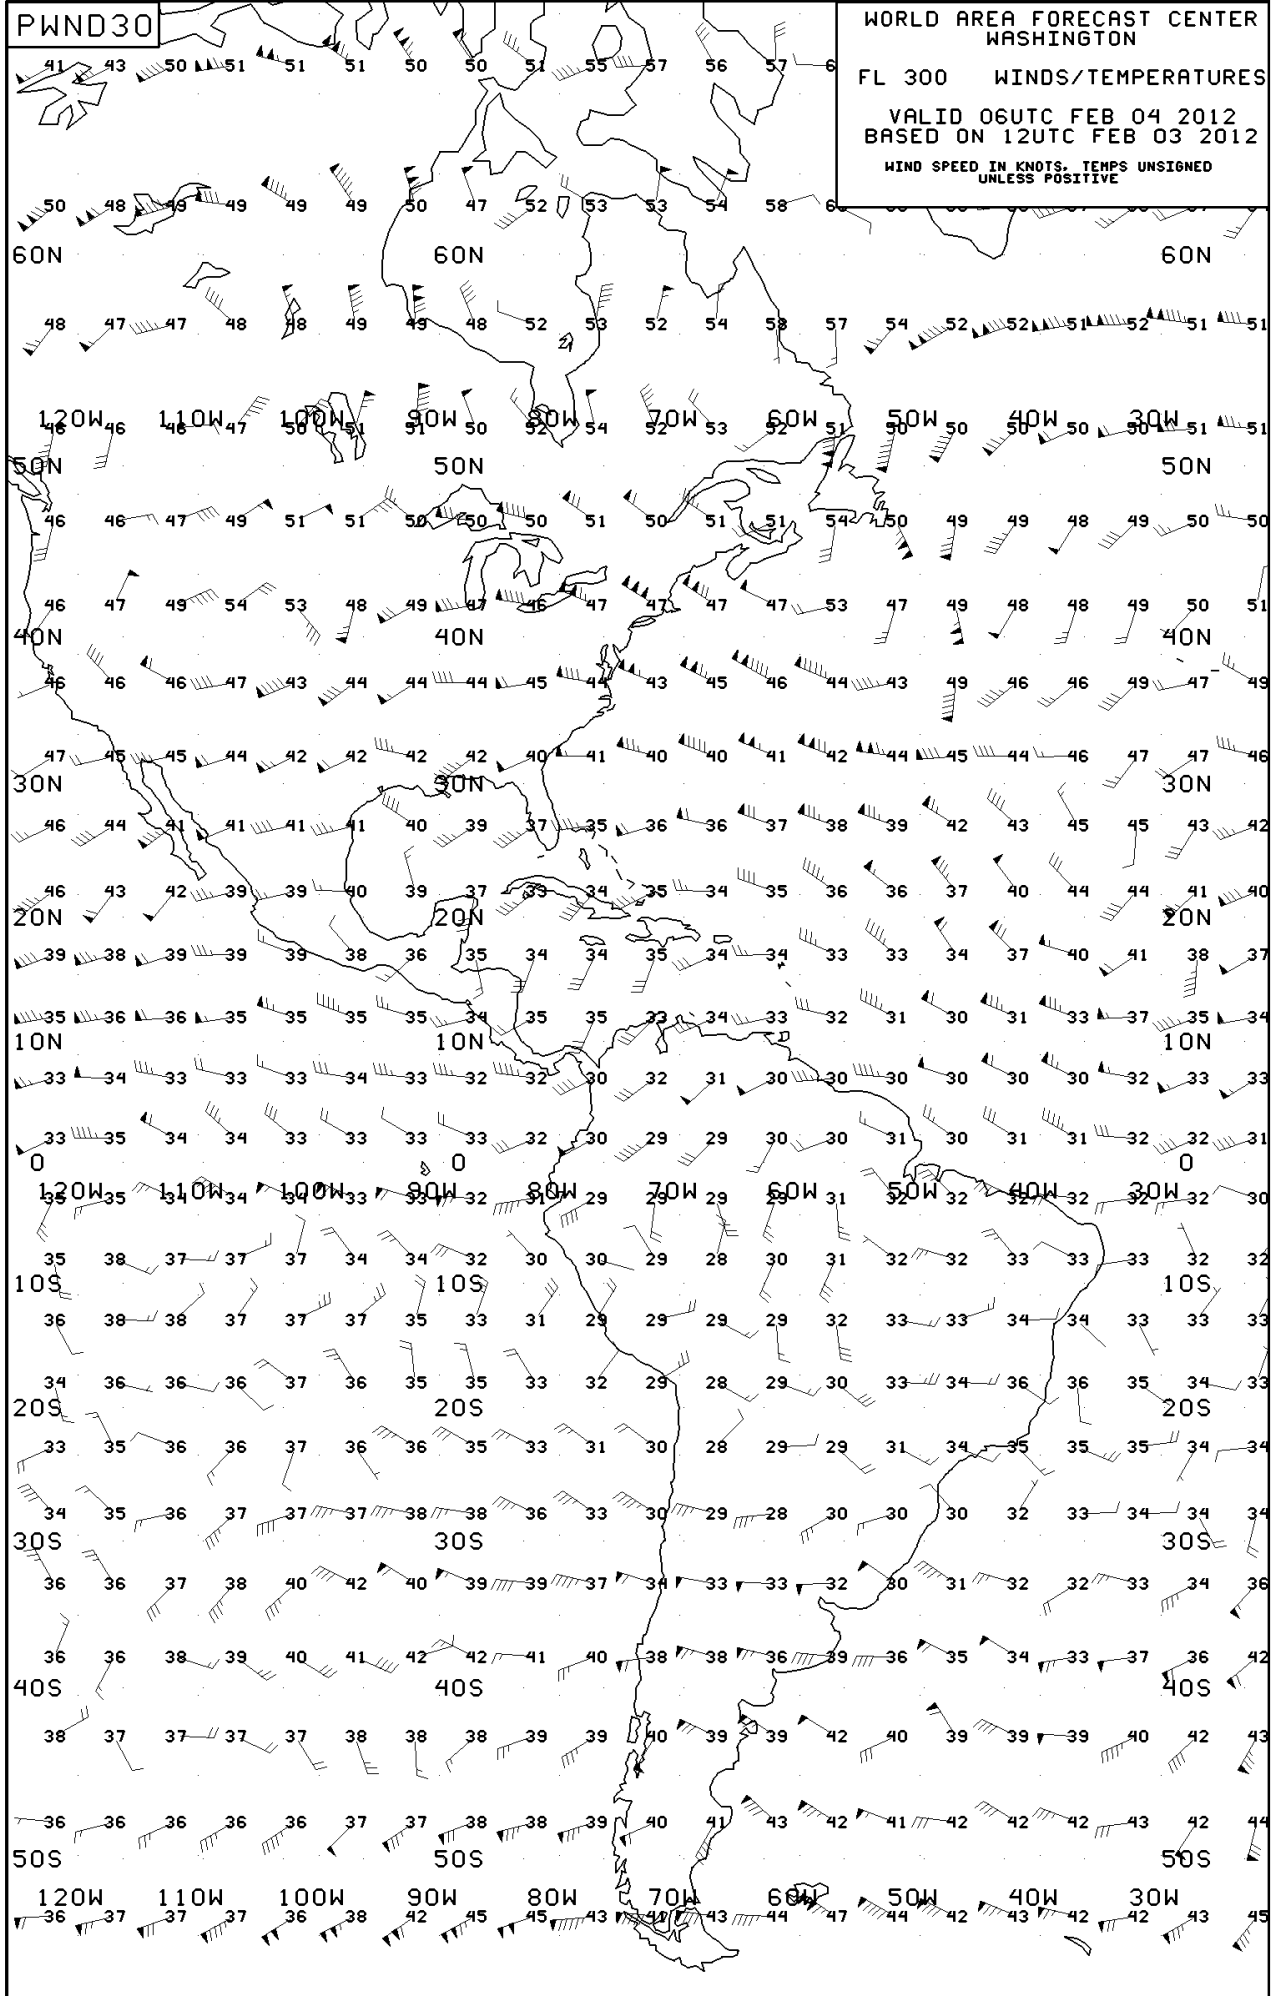 PWND30
WORLD AREA FORECAST CENTER
WASHINGTON
FL 300 WINDS/TEMPERATURES
VALID 06UTC FEB 04 2012
BASED ON 12UTC FEB 03 2012
WIND SPEED IN KNOTS, TEMPS UNSIGNED
UNLESS POSITIVE
41 43 50 51 51 51 50 50 51 55 57 56 57
50 48 49 49 49 49 50 47 52 53 53 54 58
60N 60N 60N
48 47 47 48 48 49 49 48 52 53 52 54 58 57 54 52 52 51 52 51 51
120W 110W 100W 90W 80W 70W 60W 50W 40W 30W
46 46 46 47 50 51 51 50 52 54 52 53 52 51 50 50 50 50 50 51 51
50N 50N 50N
46 46 47 49 51 51 50 50 50 51 50 51 51 54 50 49 49 48 49 50 50
46 47 49 54 53 48 49 47 46 47 47 47 47 53 47 49 48 48 49 50 51
40N 40N 40N
46 46 46 47 43 44 44 44 45 44 43 45 46 44 43 49 46 46 49 47 49
47 45 45 44 42 42 42 42 40 41 40 40 41 42 44 45 44 46 47 47 46
30N 30N 30N
46 44 41 41 41 41 40 39 37 35 36 36 37 38 39 42 43 45 45 43 42
46 43 42 39 39 40 39 37 33 34 35 34 35 36 36 37 40 44 44 41 40
20N 20N 20N
39 38 39 39 39 38 36 35 34 34 35 34 34 33 33 34 37 40 41 38 37
35 36 36 35 35 35 35 34 35 35 33 34 33 32 31 30 31 33 37 35 34
10N 10N 10N
33 34 33 33 33 34 33 32 32 30 32 31 30 30 30 30 30 30 32 33 33
33 35 34 34 33 33 33 33 32 30 29 29 30 30 31 30 31 31 32 32 31
0 0 0
120W 110W 100W 90W 80W 70W 60W 50W 40W 30W
35 35 34 34 34 33 33 32 31 29 29 29 29 31 32 32 32 32 32 32 30
35 38 37 37 37 34 34 32 30 30 29 28 30 31 32 32 33 33 33 32 32
10S 10S 10S
36 38 38 37 37 37 35 33 31 29 29 29 29 32 33 33 34 34 33 33 33
34 36 36 36 37 36 35 35 33 32 29 28 29 30 33 34 36 36 35 34 33
20S 20S 20S
33 35 36 36 37 36 36 35 33 31 30 28 29 29 31 34 35 35 35 34 34
34 35 36 37 37 37 38 38 36 33 30 29 28 30 30 30 32 33 34 34 34
30S 30S 30S
36 36 37 38 40 42 40 39 39 37 34 33 33 32 30 31 32 32 33 34 36
36 36 38 39 40 41 42 42 41 40 38 38 36 39 36 35 34 33 37 36 42
40S 40S 40S
38 37 37 37 37 38 38 38 39 39 40 39 39 42 40 39 39 39 40 42 43
36 36 36 36 36 37 37 38 38 39 40 41 43 42 41 42 42 42 43 42 44
50S 50S 50S
120W 110W 100W 90W 80W 70W 60W 50W 40W 30W
36 37 37 37 36 38 42 45 45 43 42 43 44 47 44 42 43 42 42 43 45